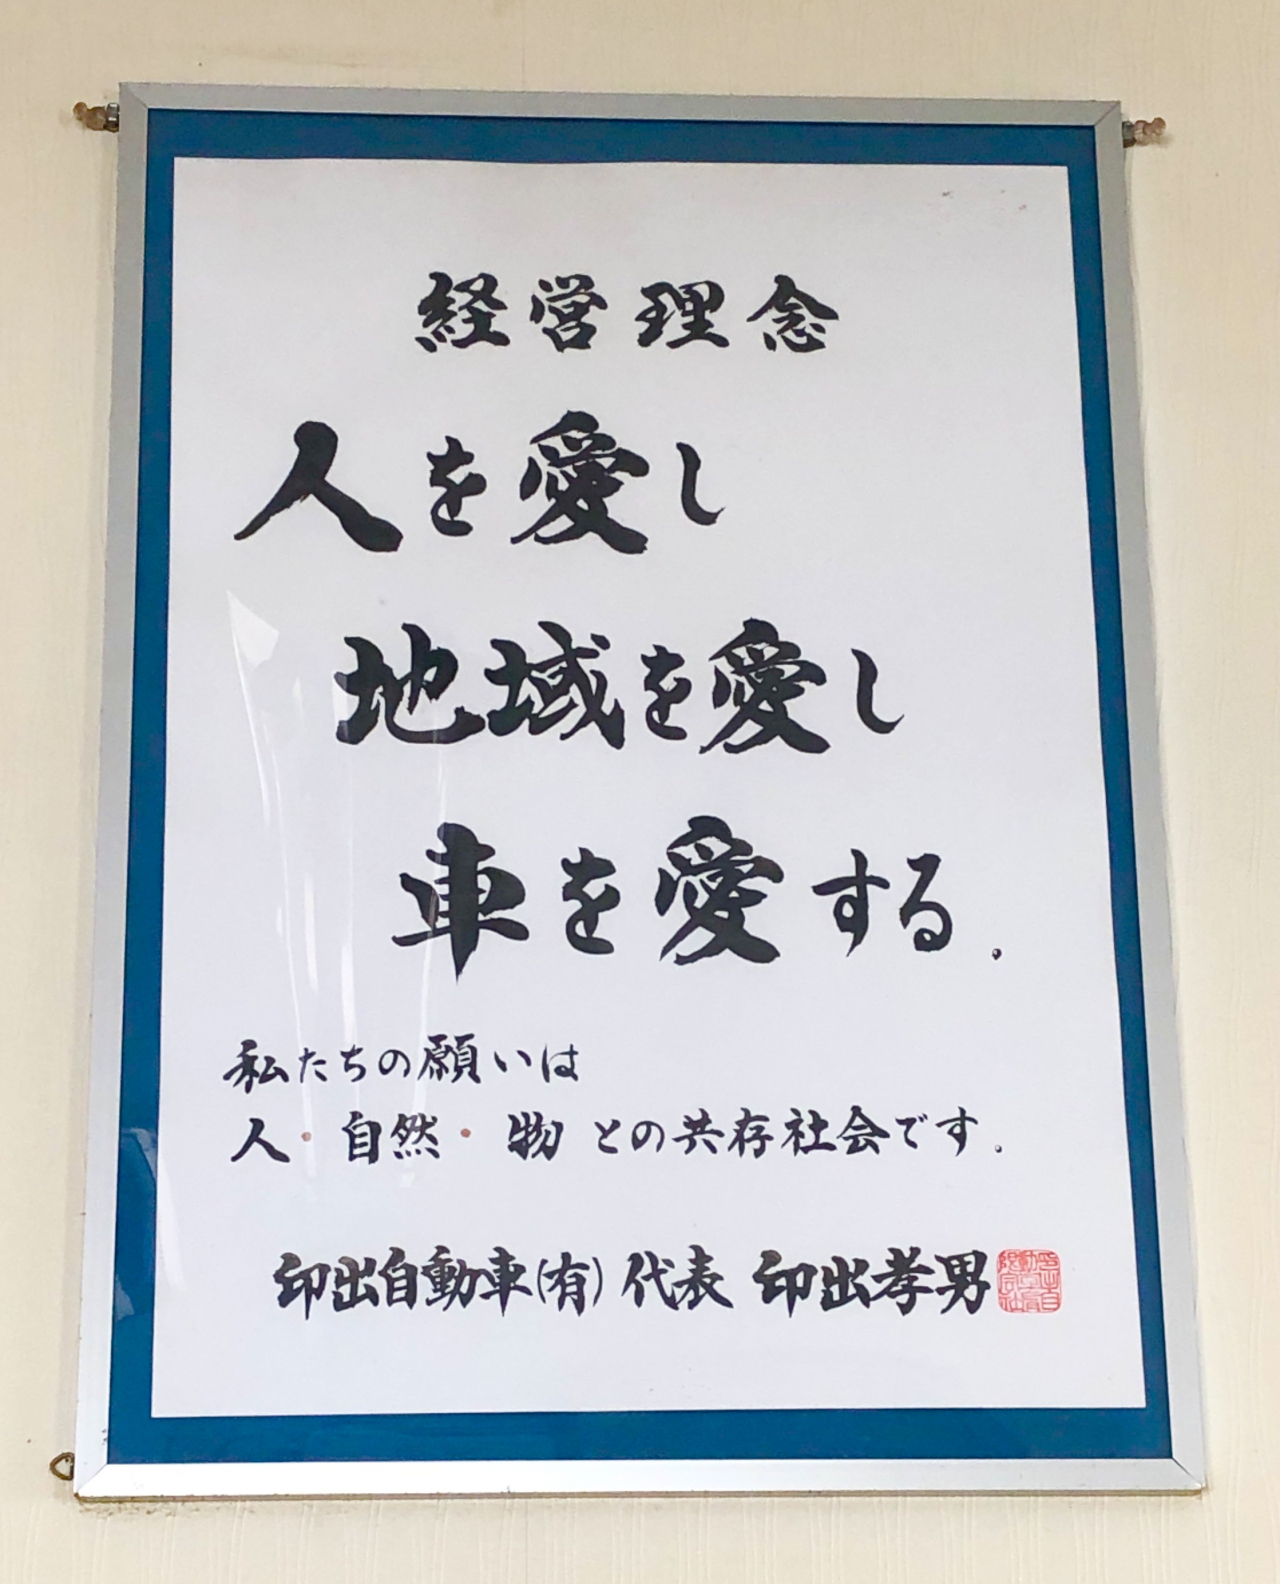 経営理念
人を愛し
地域を愛し
車を愛する.
私たちの願いは
人・自然・物との共存社会です.
印出自動車(有) 代表 印出孝男